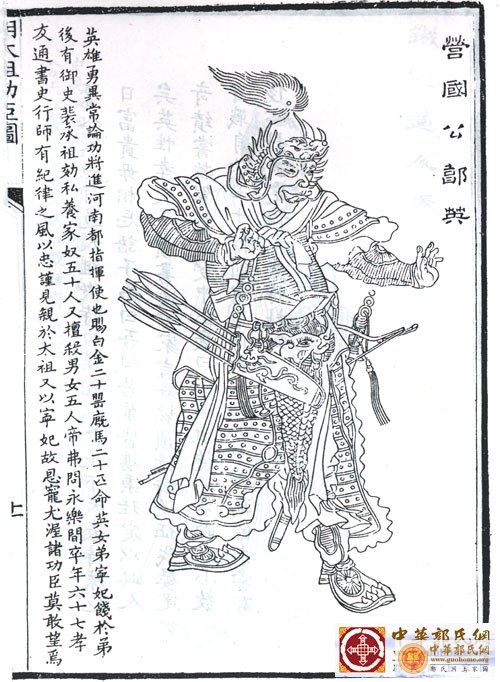 營國公郭英
英雄勇異常論功將進河南都指揮使也賜白金二十罌廄馬二十匹命英女弟寧妃餞於弟
後有御史裴承祖劾私養家奴五十人又擅殺男女五人帝弗問永樂間卒年六十七孝
友通書史行師有紀律之風以忠謹見親於太祖又以寧妃故恩寵尤渥諸功臣莫敢望焉
明太祖功臣圖
上
中華郭氏網
中華郭氏網
www.guohome.org
郭氏網上家園